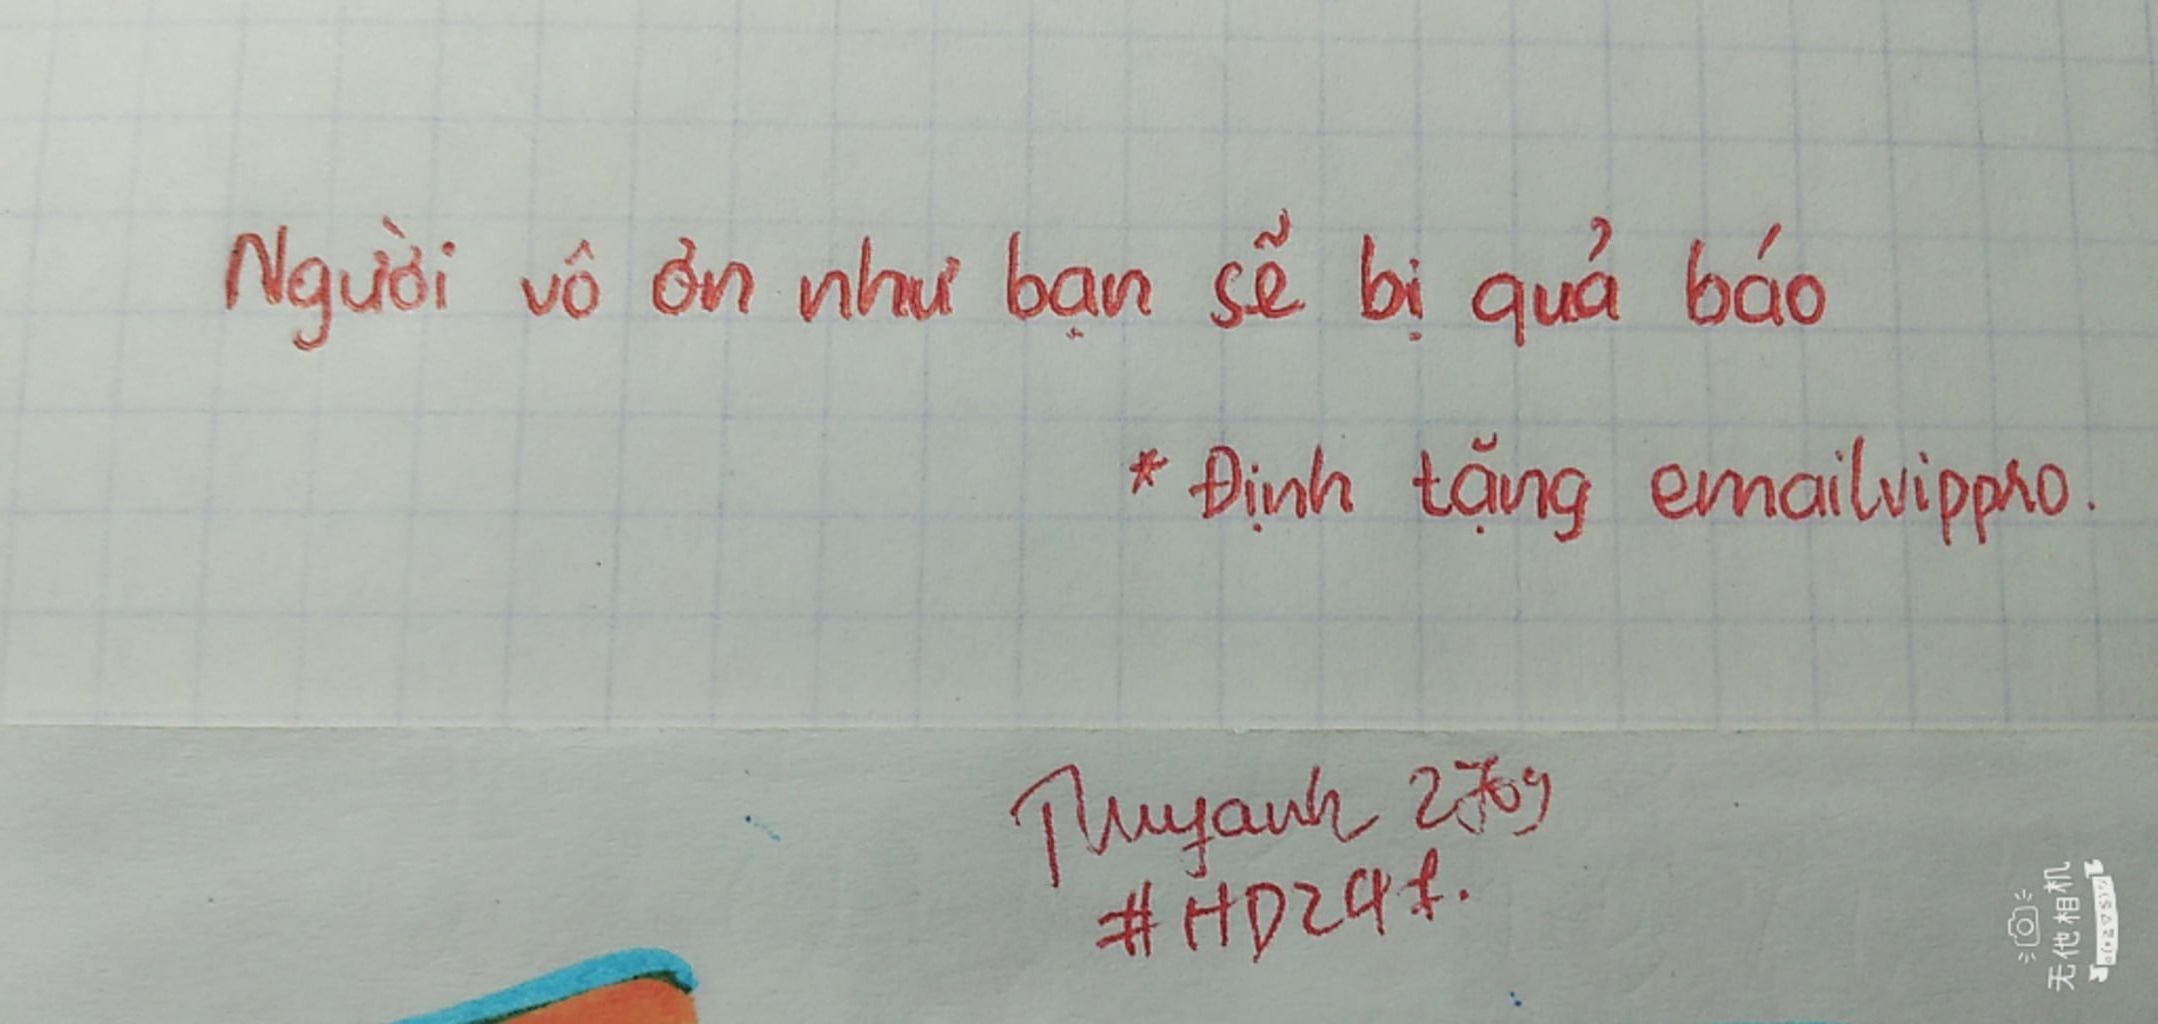 Người vô ơn như bạn sẽ bị quả báo
* Định tặng emailvippro.
Thuyanh 2709
#HD241.
无他相机